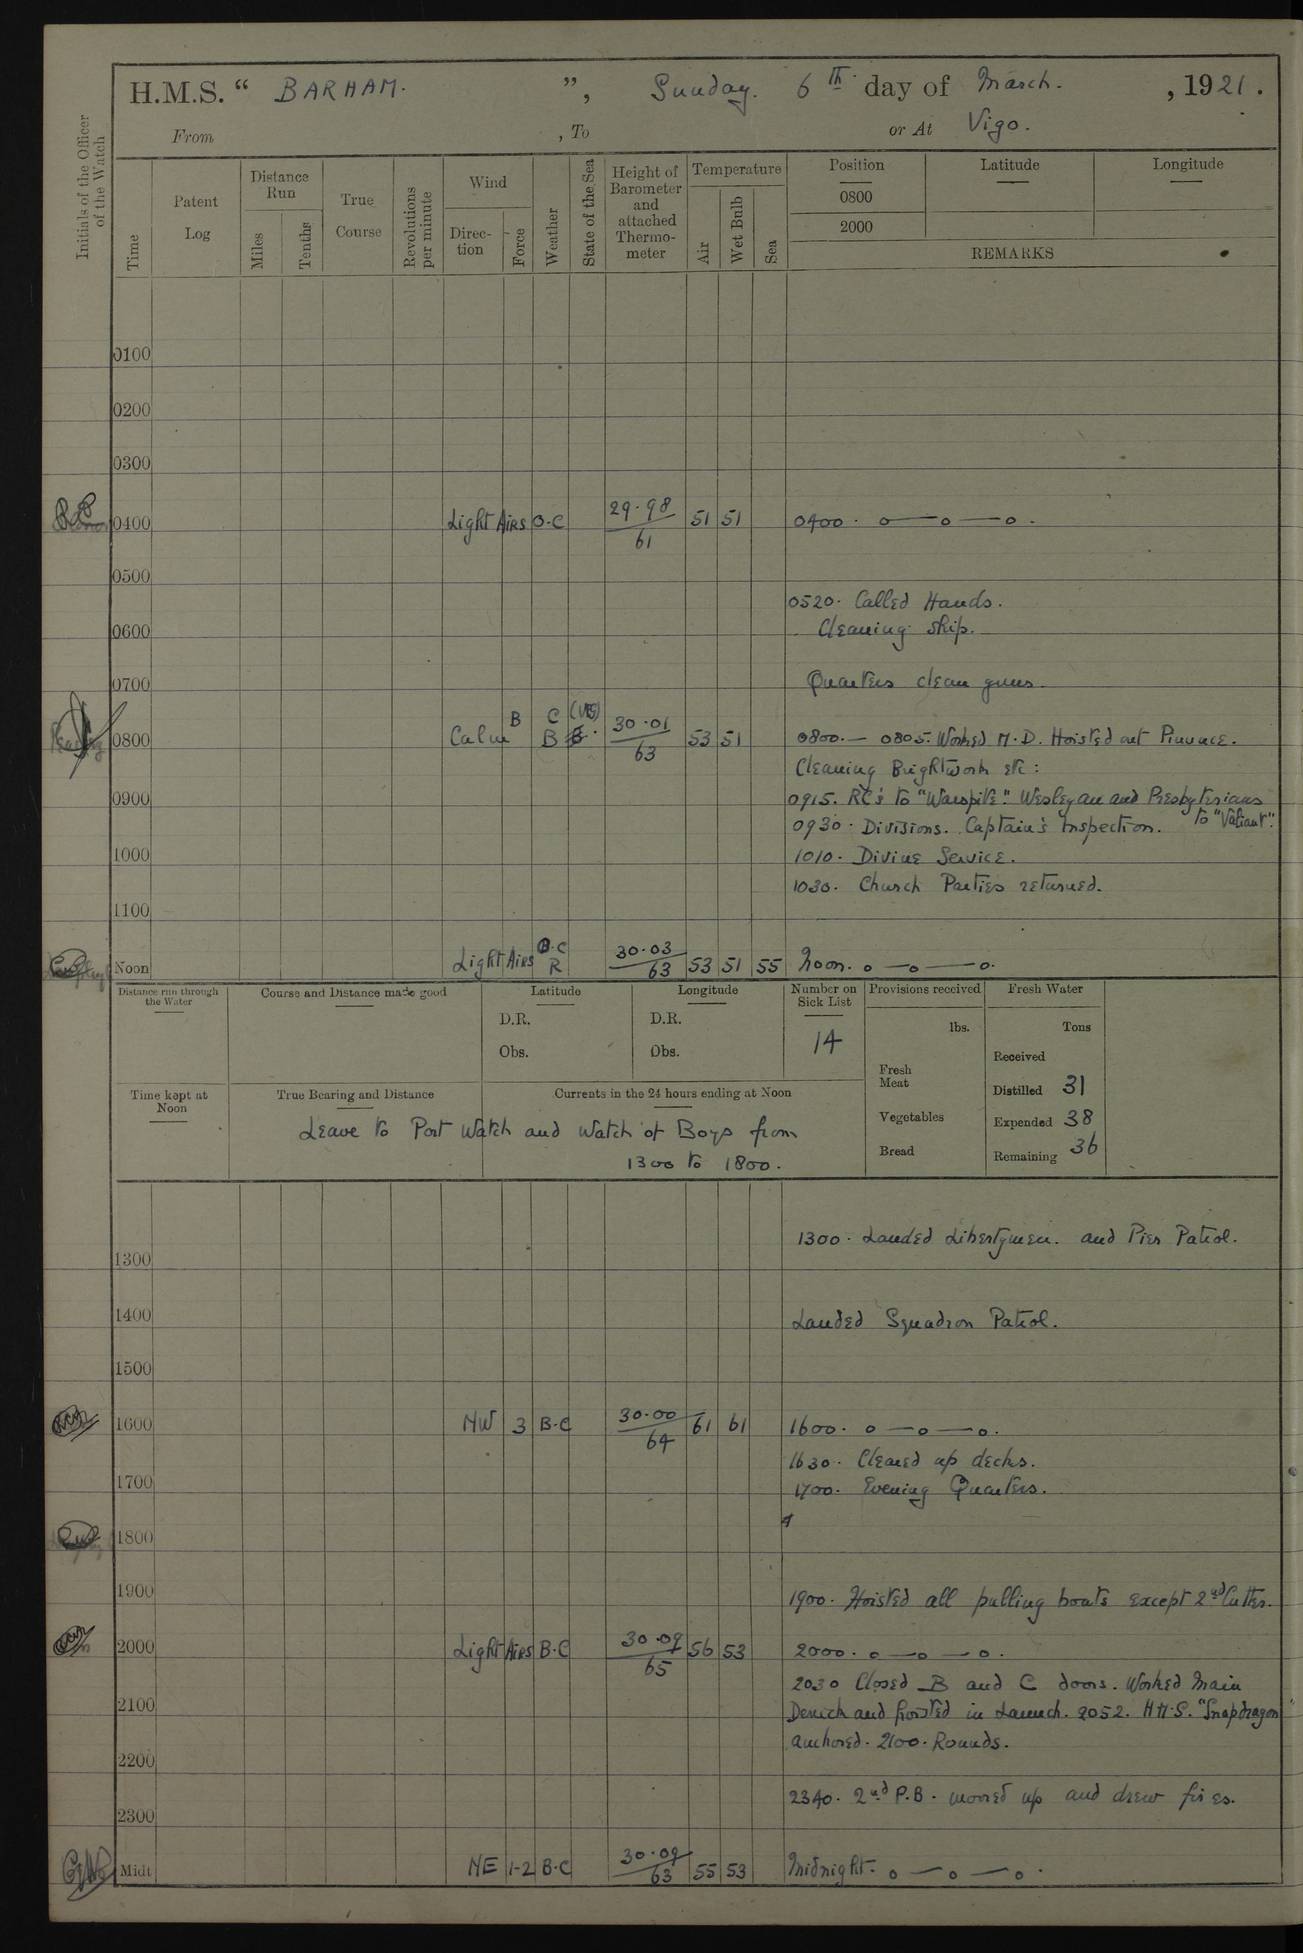 H.M.S. “ BARHAM. ”, Sunday. 6th day of March. , 1921.
From , To or At Vigo.
Initials of the Officer of the Watch
Time
Patent Log
Distance Run
Miles
Tenths
True Course
Revolutions per minute
Wind
Direc- tion
Force
Weather
State of the Sea
Height of Barometer and attached Thermo- meter
Temperature
Air
Wet Bulb
Sea
Position
Latitude
Longitude
0800
2000
REMARKS
0100
0200
0300
0400 Light Airs O.C 29.98 / 61 51 51 0400. o—o—o.
0500
0520. Called Hands.
0600 Cleaning ship.
0700 Quarters clean guns.
0800 Calm B C (VB) B 30.01 / 63 53 51 0800.— 0805. Worked M.D. Hoisted out Pinnace.
Cleaning Brightwork etc:
0900 0915. RC's to "Warspite". Wesleyan and Presbyterians to "Valiant".
0930. Divisions. Captain's Inspection.
1000 1010. Divine Service.
1030. Church Parties returned.
1100
Noon Light Airs B.C R 30.03 / 63 53 51 55 Noon. o—o—o.
Distance run through the Water
Course and Distance made good
Latitude
D.R.
Obs.
Longitude
D.R.
Obs.
Number on Sick List
14
Provisions received
lbs.
Fresh Meat
Vegetables
Bread
Fresh Water
Tons
Received
Distilled 31
Expended 38
Remaining 36
Time kept at Noon
True Bearing and Distance
Currents in the 24 hours ending at Noon
Leave to Port Watch and Watch of Boys from
1300 to 1800.
1300. Landed Libertymen. and Pier Patrol.
1300
1400 Landed Squadron Patrol.
1500
1600 NW 3 B.C 30.00 / 64 61 61 1600. o—o—o.
1630. Cleared up decks.
1700 1700. Evening Quarters.
1800
1900 1900. Hoisted all pulling boats except 2nd Cutter.
2000 Light Airs B.C 30.09 / 65 56 53 2000. o—o—o.
2030 Closed B and C doors. Worked Main
2100 Derrick and hoisted in Launch. 2052. H.M.S. "Snapdragon"
anchored. 2100. Rounds.
2200
2340. 2nd P.B. moored up and drew fires.
2300
Midt NE 1-2 B.C 30.09 / 63 55 53 Midnight. o—o—o.